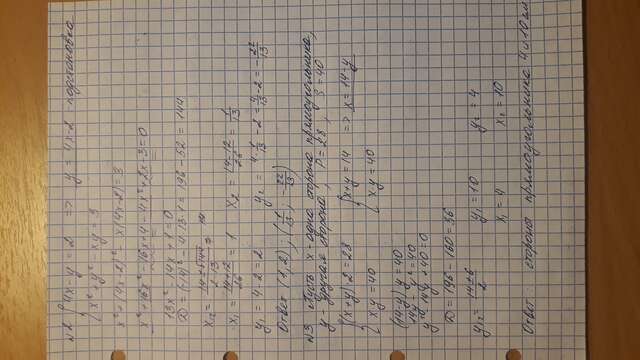 N2 { 4x-y=2 => y = 4x-2 подстановка
{ x²+y²-xy=3
x²+(4x-2)²-x(4x-2)=3
x²+16x²-16x+4-4x²+2x-3=0
13x²-14x+1=0
D=(-14)²-4·13·1=196-52=144
x₁,₂= (14±√144)/(2·13) =>
x₁ = (14+12)/26 = 1 x₂ = (14-12)/26 = 1/13
y₁ = 4-2=2 y₂ = 4·1/13-2 = 4/13-2 = -22/13
Ответ: (1,2); (1/13; -22/13)
N3 Пусть x - одна сторона прямоугольника,
y - другая сторона, P=28, S=40
{ (x+y)·2=28 { x+y=14 => x=14-y
{ xy=40 { xy=40
(14-y)y=40
14y-y²=40
y²-14y+40=0
D=196-160=36
y₁,₂= (14±6)/2 y₁=10 y₂=4
x₁=4 x₂=10
Ответ: стороны прямоугольника 4 и 10 см